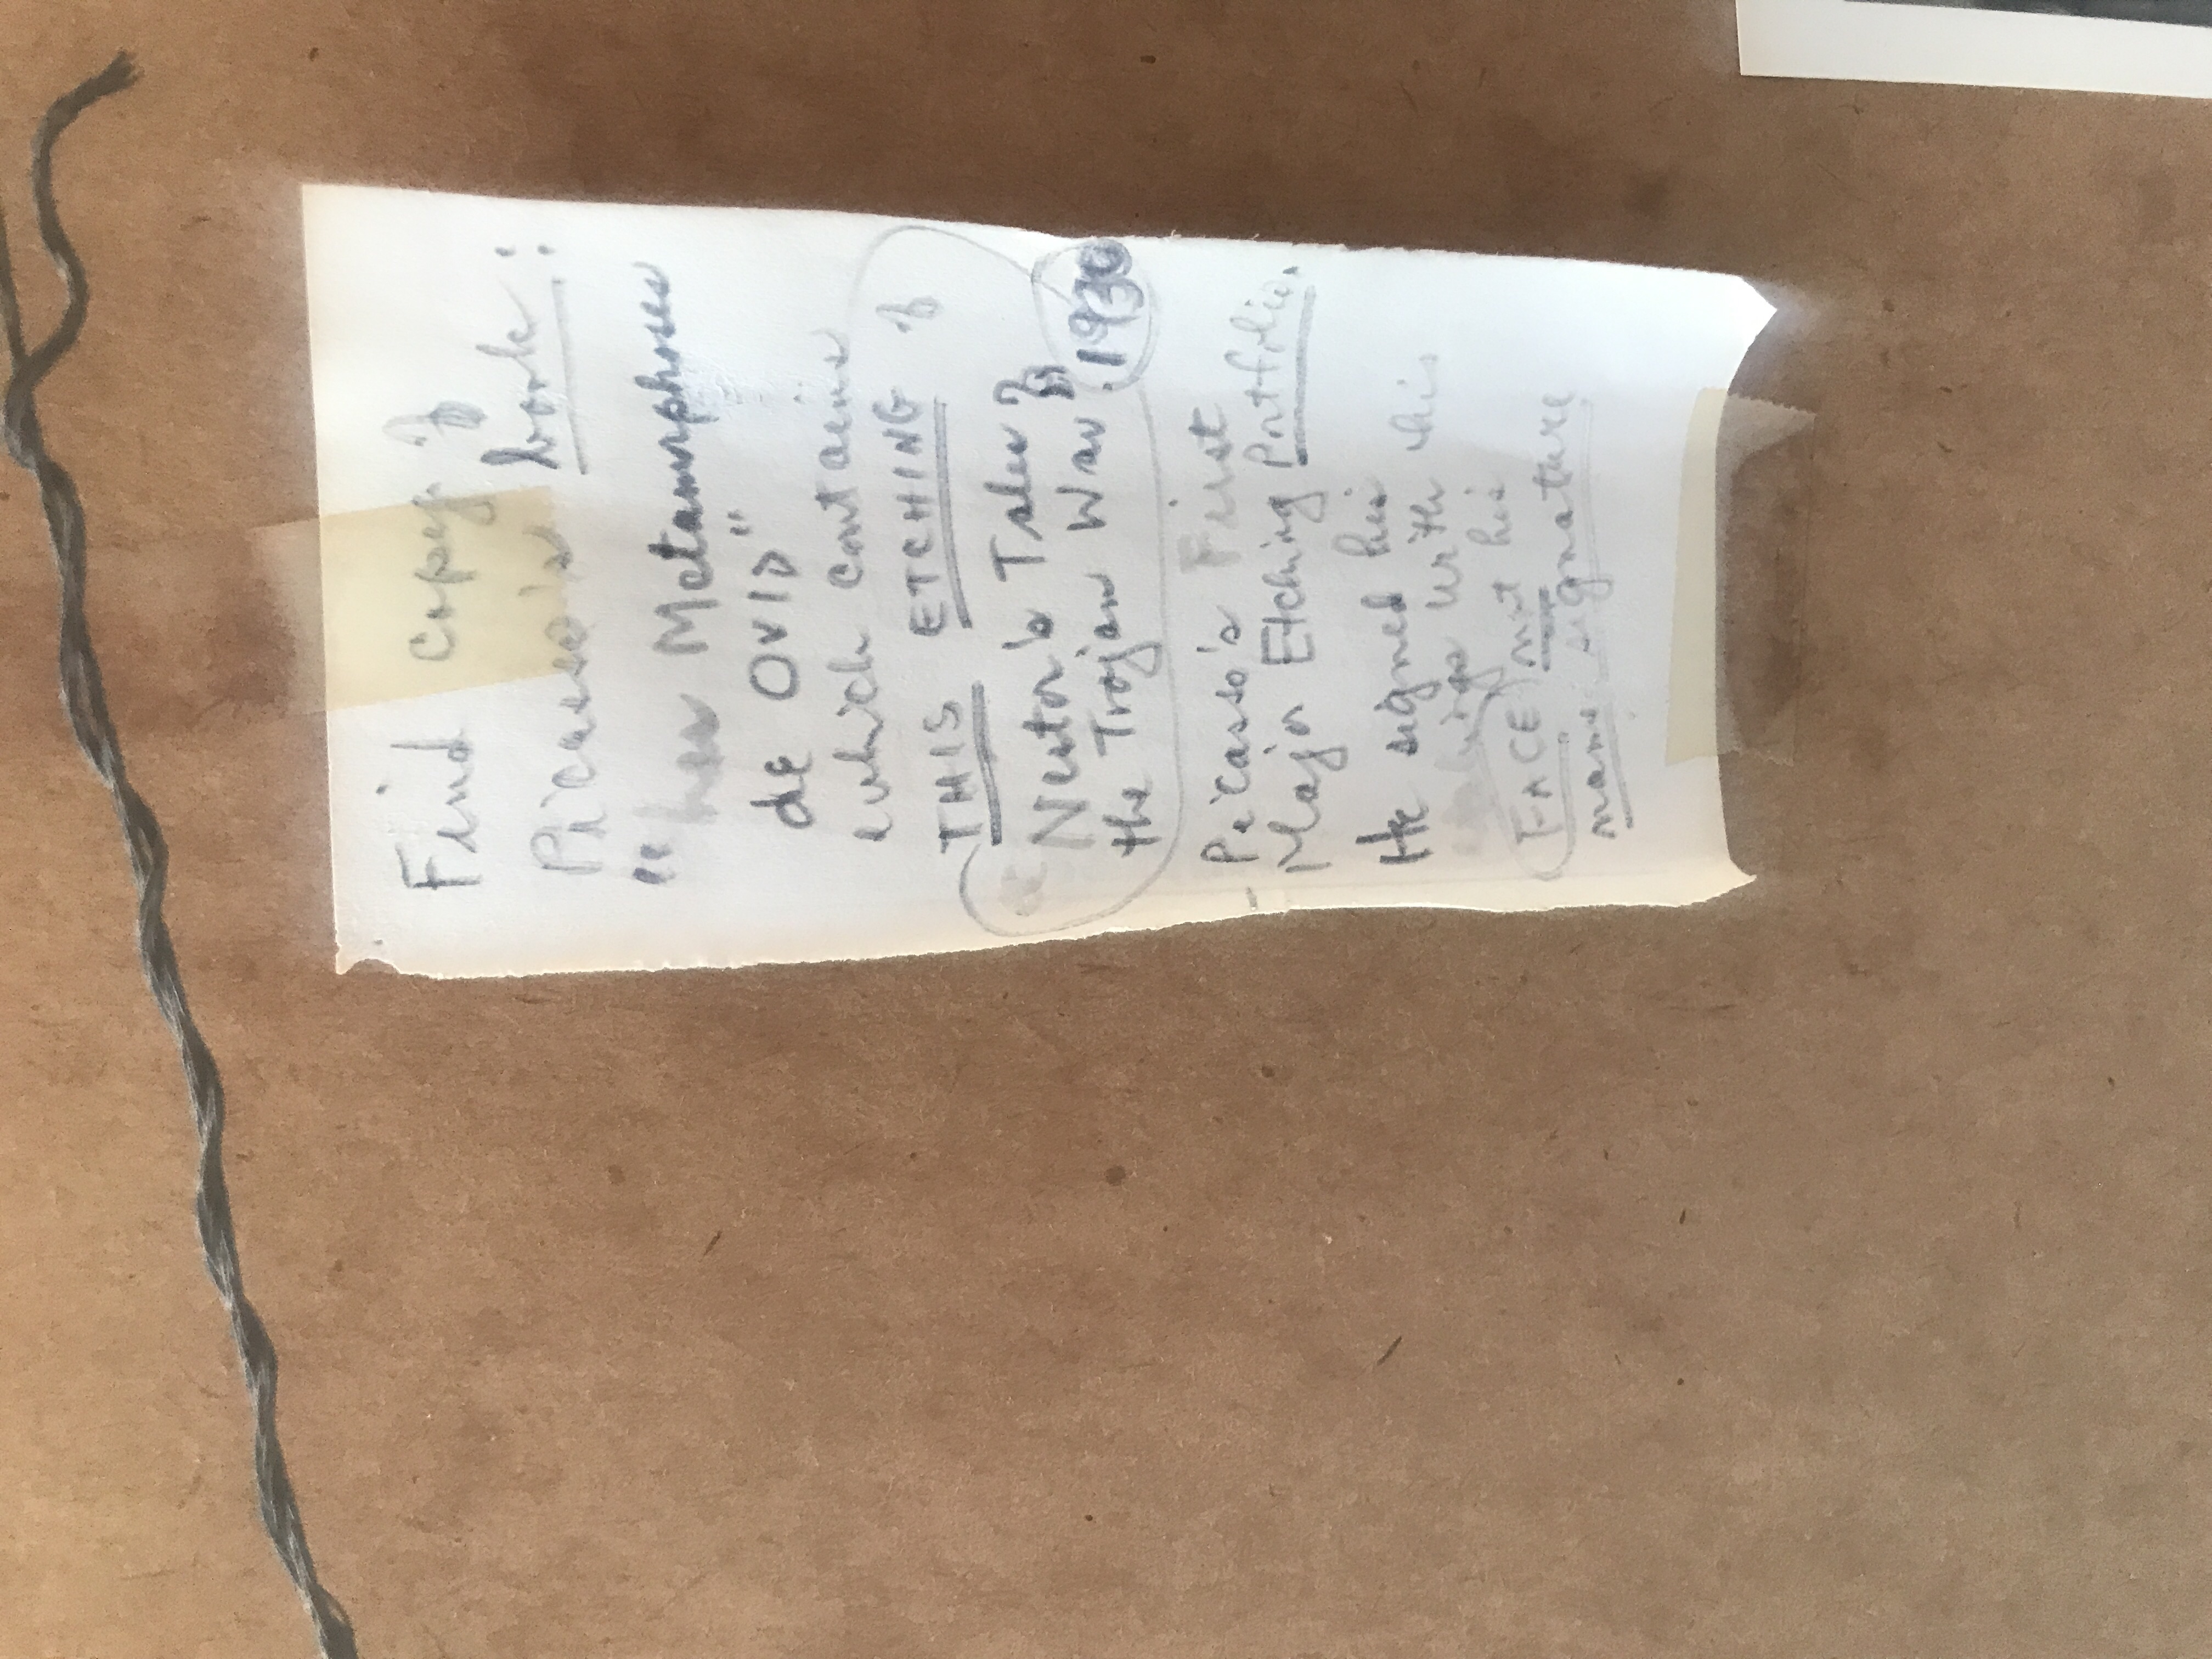 Find copy of
Picasso's book:
" Les Metamorphoses
de OVID"
which contains
THIS ETCHING of
Nestor's Tales of
the Trojan War. 1930
- Picasso's First
Major Etching Portfolio.
He signed his
with this
FACE not his
name signature